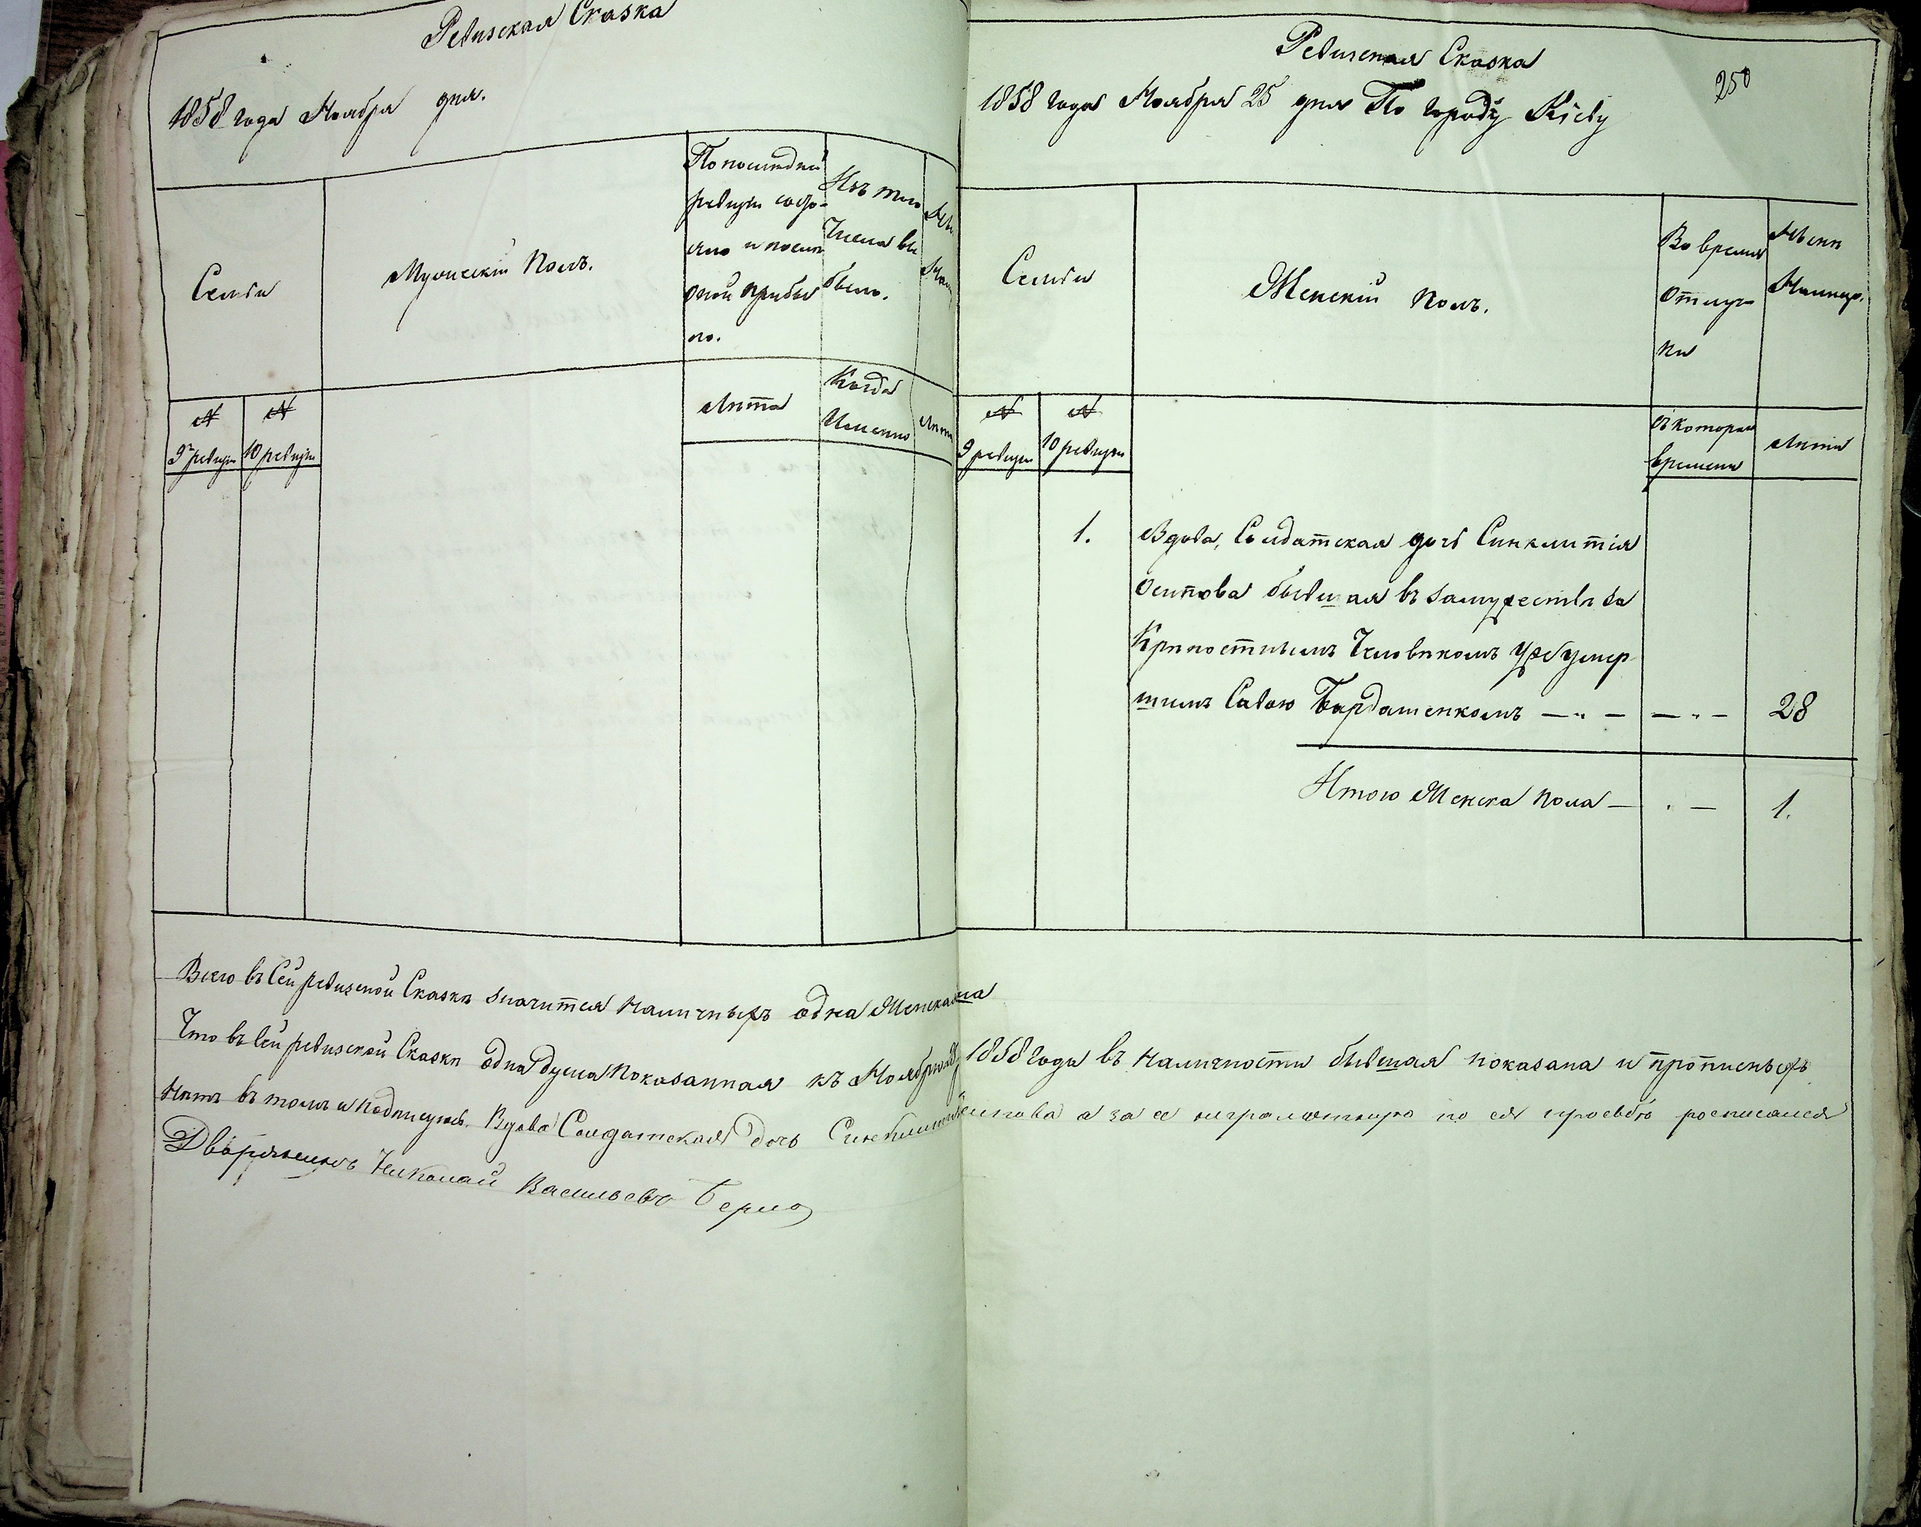 Ревизская Сказка
1858 года Ноября дня.
Семьи
Мужескій полъ.
По последней
ревизіи состо-
яло и после
оной прибы
ло.
Изъ того
Числа вы
было.
№
9й ревизіи
№
10 ревизіи
Лѣта
Когда
Именно
Лѣта
Ревизская Сказка
250
1858 года Ноября 25 дня По городу Кіеву
Семьи
Женскій полъ.
Во временн
отлуч-
ки
Нынѣ
На лицо.
№
9 ревизіи
№
10 ревизіи
Съ котораго
времени
Лѣта
1. Вдова, Солдатская дочь Синклитія
Осипова бывшая въ замужествѣ за
Крѣпостнымъ Человѣкомъ уже умер
шимъ Савою Бардашенкомъ — „ — — „ — 28
Итого Женска пола — . — 1.
Всего въ Сей ревизской Сказкѣ значится наличныхъ одна Женска пола
Что въ Сей ревизской Сказкѣ одна душа показанная къ Ноября 1858 года въ наличности бывшая показана и прописныхъ
нѣтъ въ томъ и подписуюсь. Вдова Солдатская дочь Синклитія Осипова а за ее неграмотную по ея просьбѣ росписался
Дворянинъ Николай Васильевъ Берло